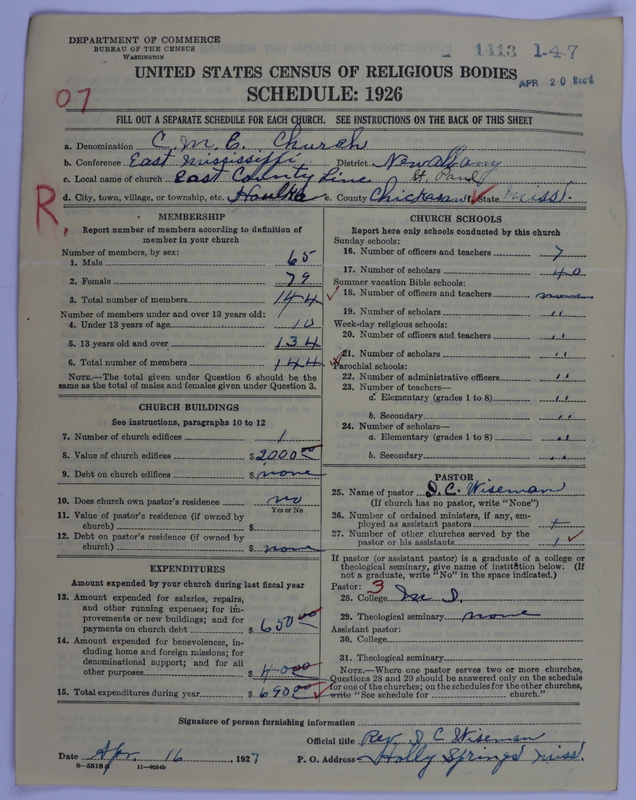 DEPARTMENT OF COMMERCE
BUREAU OF THE CENSUS
WASHINGTON
1413 1-4-7
UNITED STATES CENSUS OF RELIGIOUS BODIES
APR 20
SCHEDULE: 1926
07
FILL OUT A SEPARATE SCHEDULE FOR EACH CHURCH. SEE INSTRUCTIONS ON THE BACK OF THIS SHEET
a. Denomination C. M. E. Church
b. Conference East Mississippi District New Albany
c. Local name of church East County Line St. Paul
d. City, town, village, or township, etc. Houlka e. County Chickasaw f. State Miss.
R.
MEMBERSHIP
Report number of members according to definition of
member in your church
Number of members, by sex:
1. Male 65
2. Female 79
3. Total number of members 144
Number of members under and over 13 years old:
4. Under 13 years of age 10
5. 13 years old and over 134
6. Total number of members 144
NOTE.—The total given under Question 6 should be the
same as the total of males and females given under Question 3.
CHURCH BUILDINGS
See instructions, paragraphs 10 to 12
7. Number of church edifices 1
8. Value of church edifices $ 2000.00
9. Debt on church edifices $ none
10. Does church own pastor's residence no
Yes or No
11. Value of pastor's residence (if owned by
church) $
12. Debt on pastor's residence (if owned by
church) $ none
EXPENDITURES
Amount expended by your church during last fiscal year
13. Amount expended for salaries, repairs,
and other running expenses; for im-
provements or new buildings; and for
payments on church debt $ 650.00
14. Amount expended for benevolences, in-
cluding home and foreign missions; for
denominational support; and for all
other purposes $ 40.00
15. Total expenditures during year $ 690.00
CHURCH SCHOOLS
Report here only schools conducted by this church
Sunday schools:
16. Number of officers and teachers 7
17. Number of scholars 40
Summer vacation Bible schools:
18. Number of officers and teachers none
19. Number of scholars "
Week-day religious schools:
20. Number of officers and teachers "
21. Number of scholars "
Parochial schools:
22. Number of administrative officers "
23. Number of teachers—
a. Elementary (grades 1 to 8) "
b. Secondary "
24. Number of scholars—
a. Elementary (grades 1 to 8) "
b. Secondary "
PASTOR
25. Name of pastor J. C. Wiseman
(If church has no pastor, write "None")
26. Number of ordained ministers, if any, em-
ployed as assistant pastors
27. Number of other churches served by the
pastor or his assistants 1
If pastor (or assistant pastor) is a graduate of a college or
theological seminary, give name of institution below. (If
not a graduate, write "No" in the space indicated.)
Pastor: 3
28. College M. I.
29. Theological seminary none
Assistant pastor:
30. College
31. Theological seminary
NOTE.—Where one pastor serves two or more churches,
Questions 28 and 29 should be answered only on the schedule
for one of the churches; on the schedules for the other churches,
write "See schedule for church."
Signature of person furnishing information
Official title Rev. J C Wiseman
Date Apr. 16, 1927 P. O. Address Holly Springs Miss.